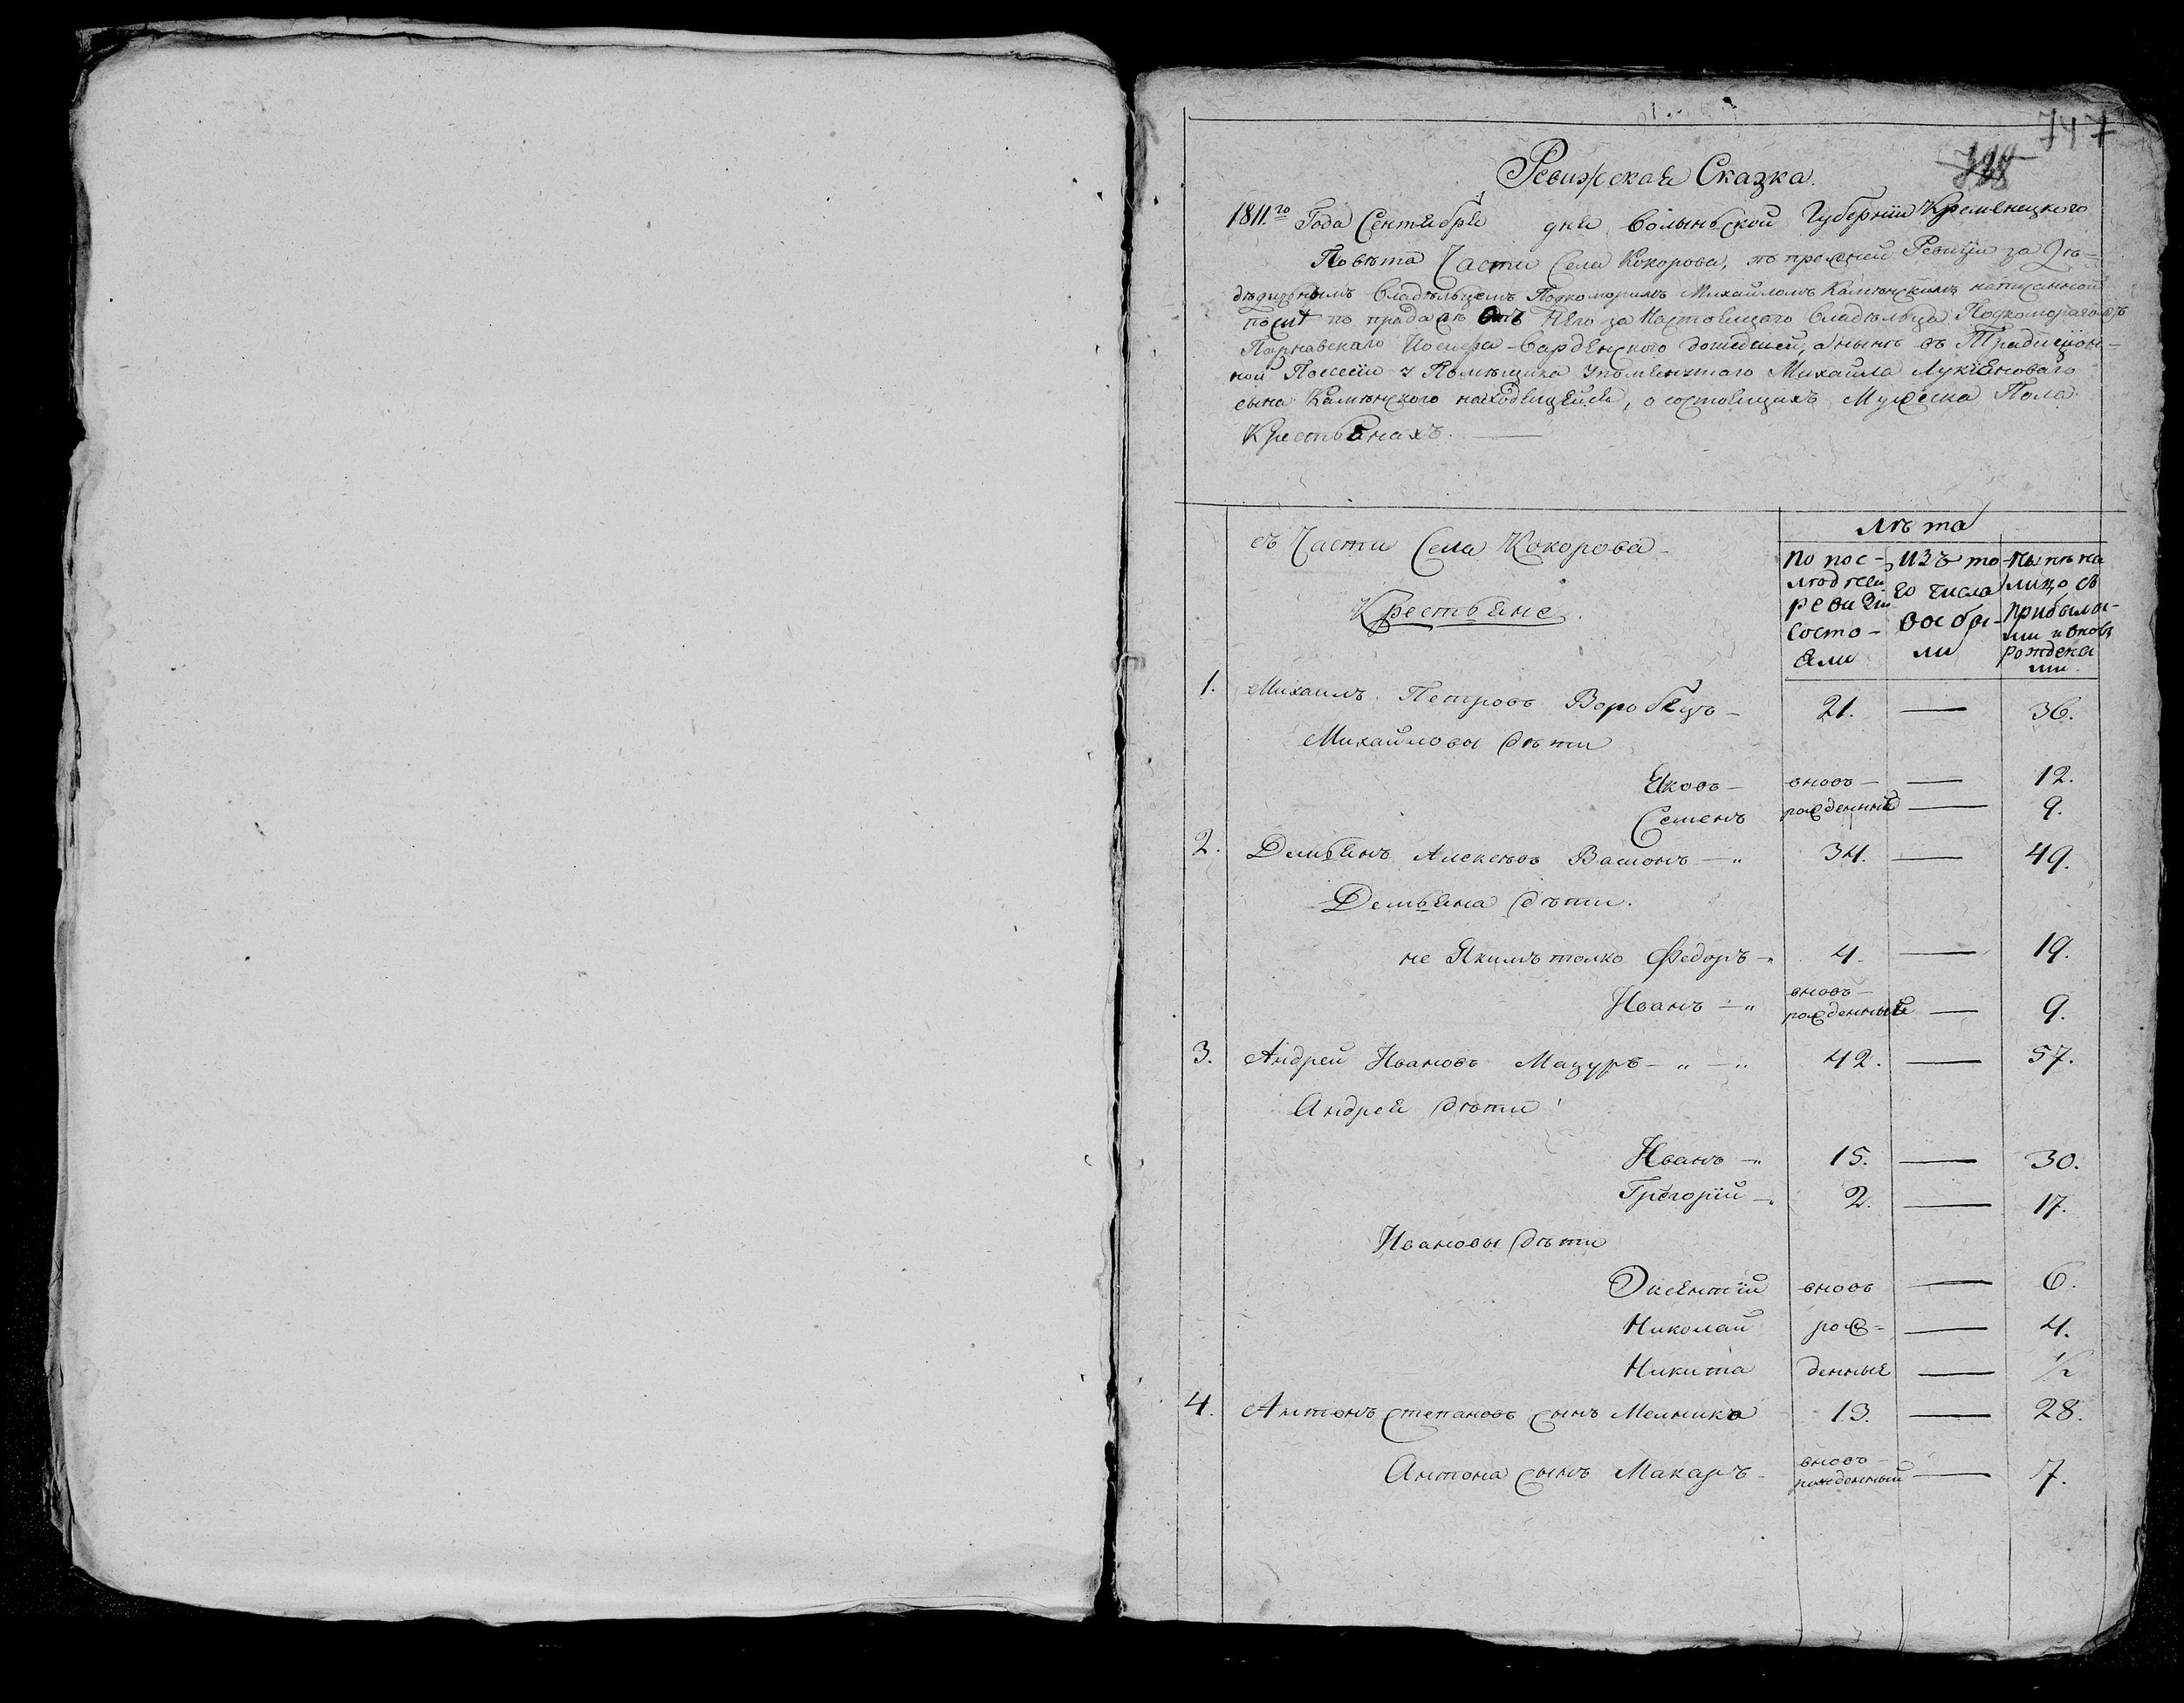 747
728
Ревижская Сказка.
1811.го Года Сентября дня Волынской Губернии Кременецкого
Повѣта Части Села Кокорова, по прежней Ревизіи за Дѣ-
дѣдичнымъ Владѣльцемъ Подкоморимъ Михайломъ Камѣнскимъ написанной
по продажѣ отъ Него за Настоящаго Владѣльца
дошедшей, а нынѣ въ Традиціон-
ной Посессіи у Помѣщика Упомянутого Михайла Лукяноваго
сына Камѣнского находящейся, о состоящихъ Мужеска Пола
Крестьянахъ.
въ Части Села Кокорова
Крестьяне.
Лѣта
по пос-
лѣдней
ревизіи
состо-
яли
изъ то-
го числа
выбы-
ли
нынѣ на
лицо съ
прибылы-
ми и вновь
рождены
ми.
1. Михаилъ Петровъ Воробецъ 21. — 36.
Михайловы дѣти
Яковъ вновь — 12.
Семенъ рожденные — 9.
2. Демьянъ Алексѣевъ Вашонъ 34. — 49.
Демьяна дѣти.
не Якимъ толко Федоръ 4 — 19.
Иванъ вновь рожденный — 9.
3. Андрей Ивановъ Мазуръ 42. — 57.
Андрея дѣти
Иванъ 15. — 30.
Григорий 2. — 17.
Ивановы дѣти
Оксентій вновь — 6.
Николай рож- — 4.
Никита денные — 1/2
4. Антонъ Степановъ сынъ Мелника 13. — 28.
Антона сынъ Макаръ вновь рожденный — 7.